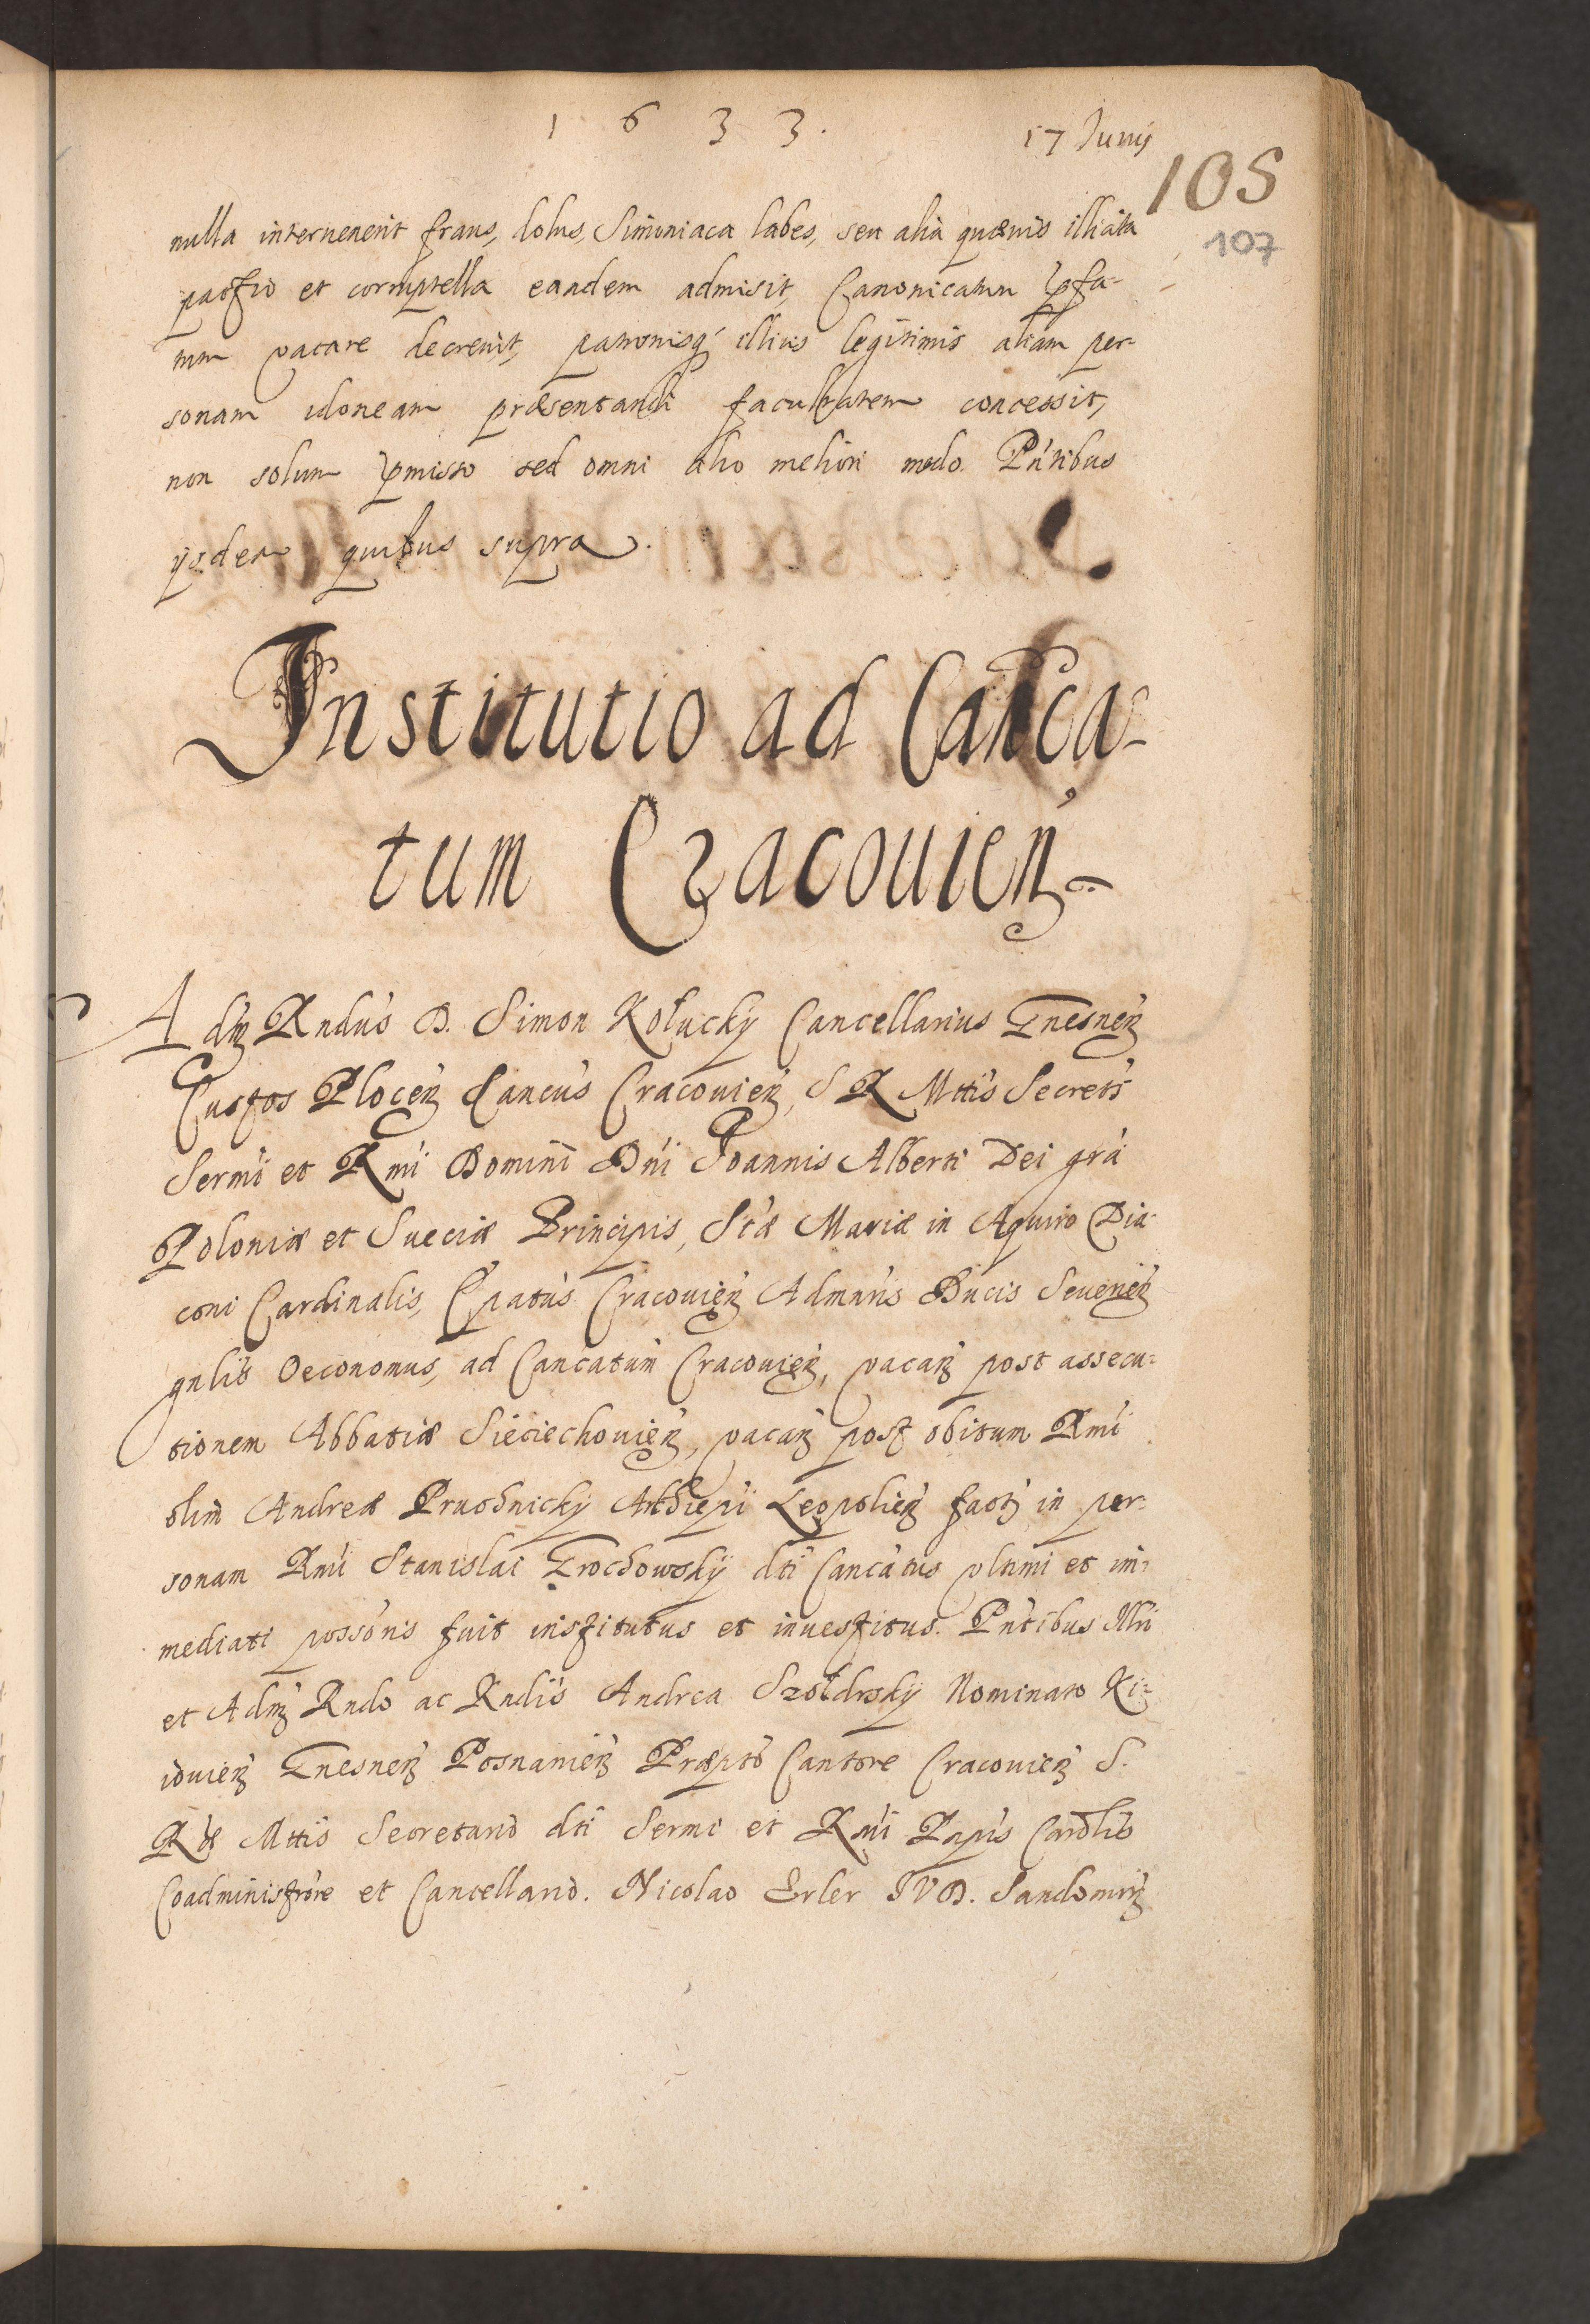 1 6 3 3. 17 Junij
105
107
nulla interuenerit fraus, dolus, Simoniaca labes, seu alia quæuis illicita
pactio et corruptella eandem admisit, Canonicatum pfa-
tum vacare decreuit, patronisq́ illius legitimis aliam per-
sonam idoneam præsentandi facultatem concessit,
non solum pmisso sed omni alio meliori modo. Pńtibus
ijsdem quibus supra.
Institutio ad Canca-
tum Cracouień
Adm̃ Rndús D. Simon Kołucky Cancellarius Gnesneń
Custos Ploceń Cancús Cracouień, S R Mttis Secrets̃
Sermí et Rmí Domini Dńi Joannis Alberti Dei grá
Poloniæ et Sueciæ Principis, Stæ Mariæ in Aquiro Dia-
coni Cardinalis, Epatús Cracouień Admnris Ducis Seuerień
gnlis Oeconomus, ad Cancatum Cracouień, vacań post assecu-
tionem Abbatiæ Sieciechouień, vacań post obitum Rmí
olim Andreæ Pruchnicky Archiepi Leopolień fact in per-
sonam Rmí Stanislai Grochowsky dti Cancatus vltimi et im-
mediati possoris fuit institutus et inuestitus. Pntibus Illri
et Adm̃ Rndo ac Rndis Andrea Szołdrsky Nominato Ki-
iouień Gnesneń Posnanień Præpto Cantore Cracouień S.
Ræ Mttis Secretario dti Sermi et Rmi Pnpis Cardlis
Coadministrore et Cancellario. Nicolao Erler JVD. Sandomirń